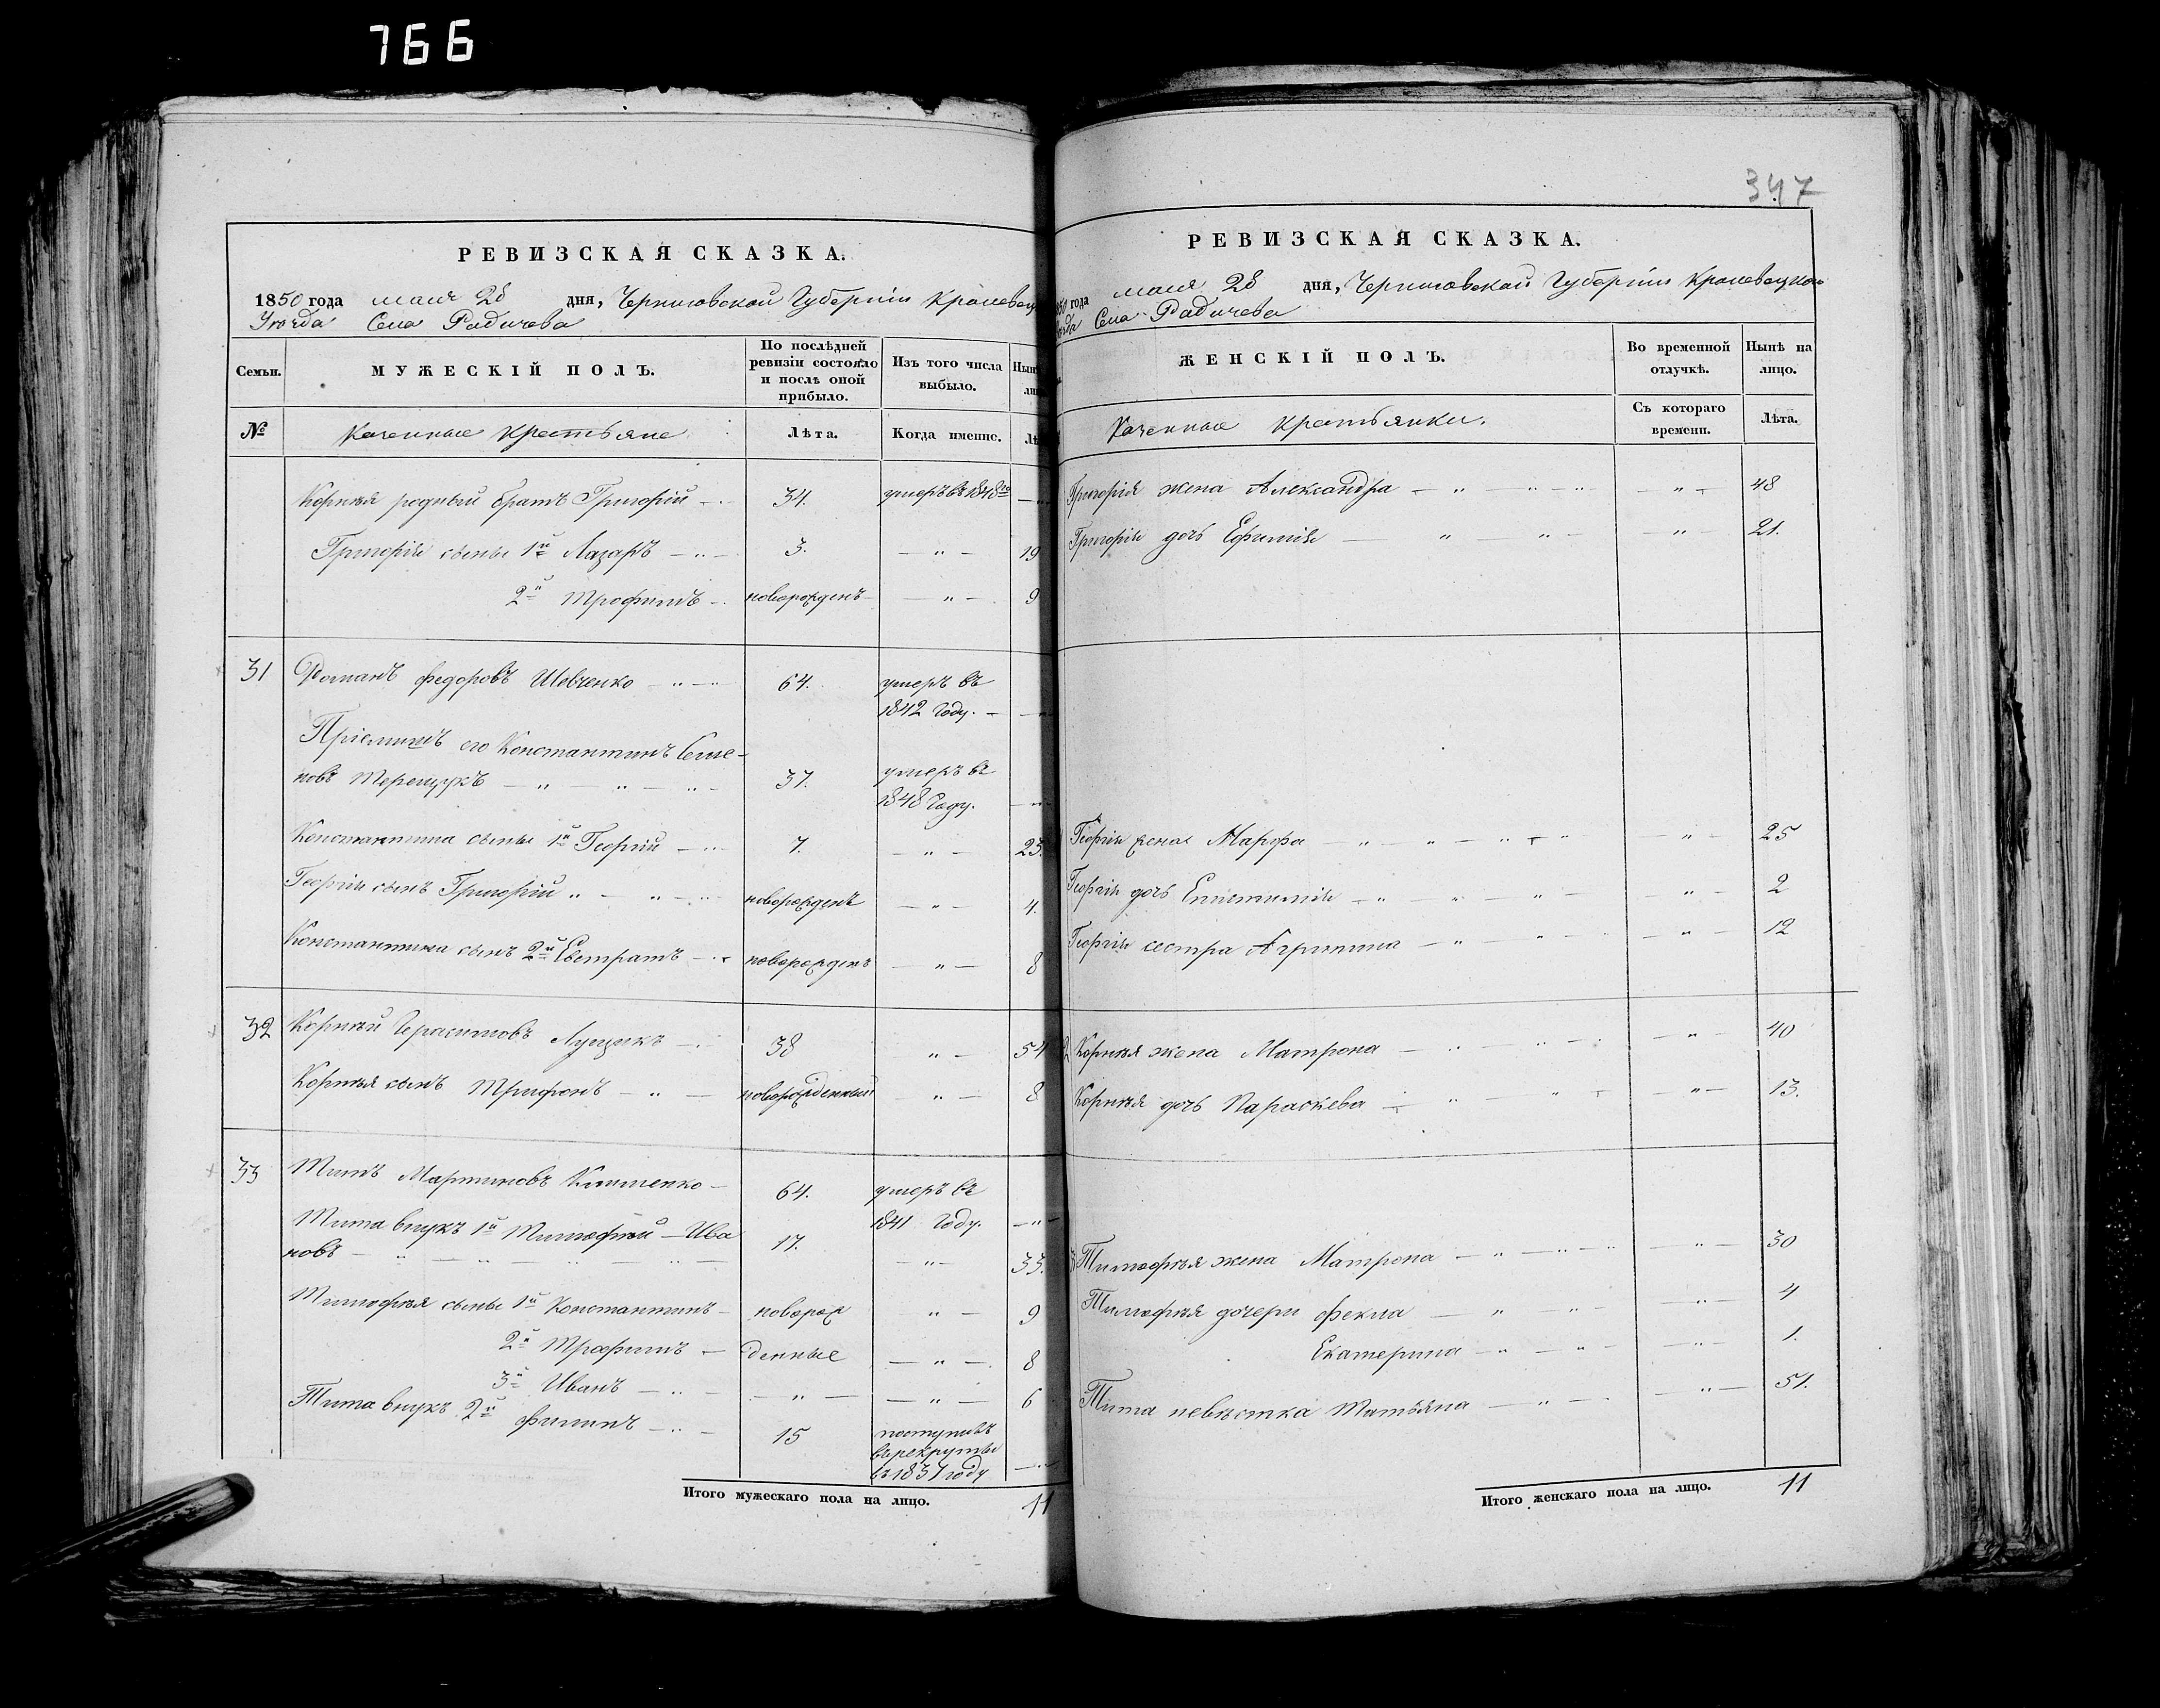 766
347
РЕВИЗСКАЯ СКАЗКА.
1850 года мая 28 дня, Черниговской Губерніи Кролевец
Уѣзда Села Радичева
Семьи. МУЖЕСКІЙ ПОЛЪ. По послѣдней ревизіи состояло и послѣ оной прибыло. Изъ того числа выбыло. Нын
№ Казенные крестьяне Лѣта. Когда именно. Лѣ
Корнѣя родный братъ Григорій 34. умеръ въ 1848 го
Григорія сыны 1й Лазаръ — " — 3. — " — 19
2й Трофимъ — новорожденъ — " — 9
31 Романъ Федоровъ Шевченко — " — 64. умеръ въ
1842 году. —
Пріемышъ его Константинъ Семе-
новъ Терещукъ — " — " — " — 37. умеръ въ
1848 году.
Константина сыны 1й Георгій — " — 7. — " — 23.
Георгія сынъ Григорій " — " — " новорожденъ — " — 4.
Константина сынъ 2й Евстратъ — новорожденъ — " — 8
32 Корнѣй Герасимовъ Лущикъ — 38 " — 54
Корнѣя сынъ Трифонъ — " — новорожденный — " — 8
33 Титъ Мартиновъ Клименко — 64. умеръ въ
1841 году. — " —
Тита внукъ 1й Тимофѣй — Ива
новъ — " — " — " — " — 17. — " — 33.
Тимофѣя сыны 1й Константинъ — новорож " — 9
2й Трофимъ — денные — " — 8
3й Иванъ — " — — " — — " — 6
Тита внукъ 2й Филипъ — " — 15 поступилъ
въ рекруты
въ 1837 году — " —
Итого мужескаго пола на лицо. 11
РЕВИЗСКАЯ СКАЗКА.
850 года мая 28 дня, Черниговской Губерніи Кролевецкого
ѣзда Села Радичева
ЖЕНСКІЙ ПОЛЪ. Во временной отлучкѣ. Нынѣ на лицо.
Казенные крестьянки. Съ котораго времени. Лѣта.
Григорія жена Александра — " — " — " — " — 48
Григорія дочь Ефимія — " — " — — " — 21.
Георгія жена Марфа — " — " — " — " — " — 25
Георгія дочь Епистимія — " — " — " — — " — 2
Георгія сестра Агрипина — " — " — " — " — 12
Корнѣя жена Матрона — " — " — — " — 40
Корнѣя дочь Параскева — " — " — — " — 13.
Тимофѣя жена Матрона — " — " — " — " — 30
Тимофѣя дочери Фекла — " — " — " — 4
Екатерина — " — " — — " — 1.
Тита невѣстка Татьяна — " — — " — 51.
Итого женскаго пола на лицо. 11